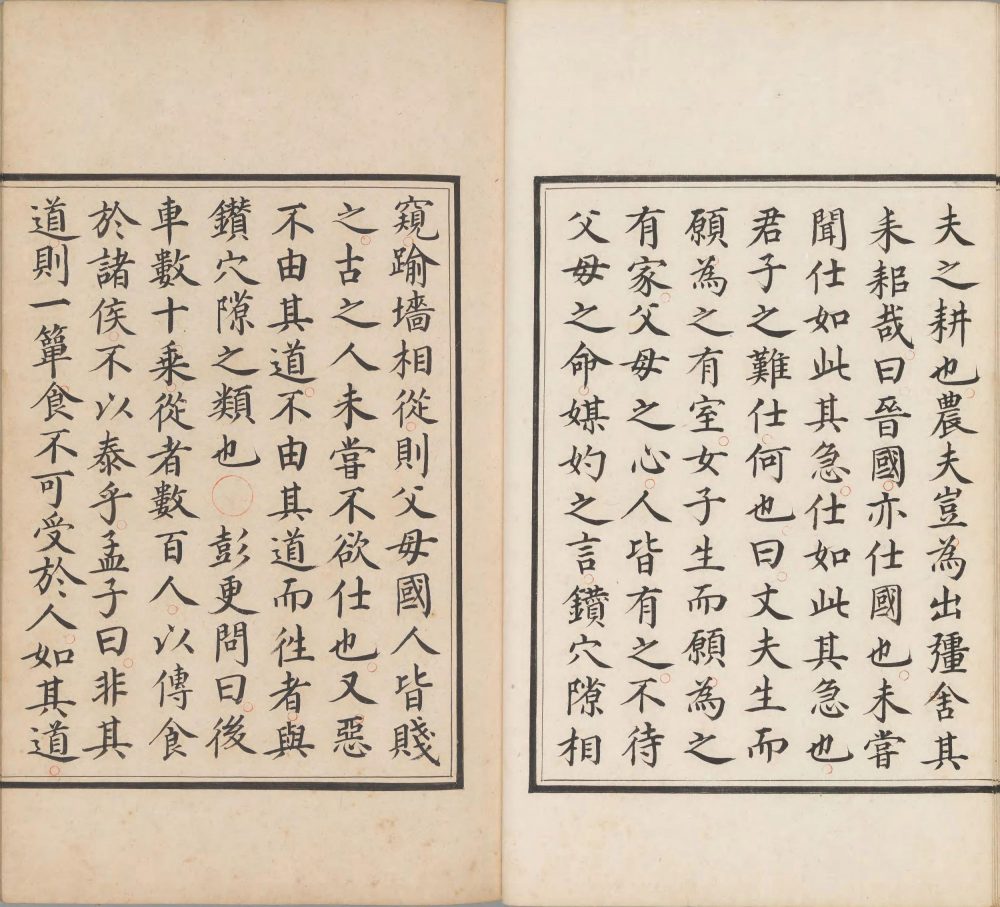 夫之耕也農夫豈為出彊舍其
耒耜哉曰晉國亦仕國也未嘗
聞仕如此其急仕如此其急也
君子之難仕何也曰丈夫生而
願為之有室女子生而願為之
有家父母之心人皆有之不待
父母之命媒妁之言鑽穴隙相
窺踰墻相從則父母國人皆賤
之古之人未嘗不欲仕也又惡
不由其道不由其道而徃者與
鑚穴隙之類也 彭更問曰後
車數十乗從者數百人以傳食
於諸侯不以泰乎孟子曰非其
道則一簞食不可受於人如其道